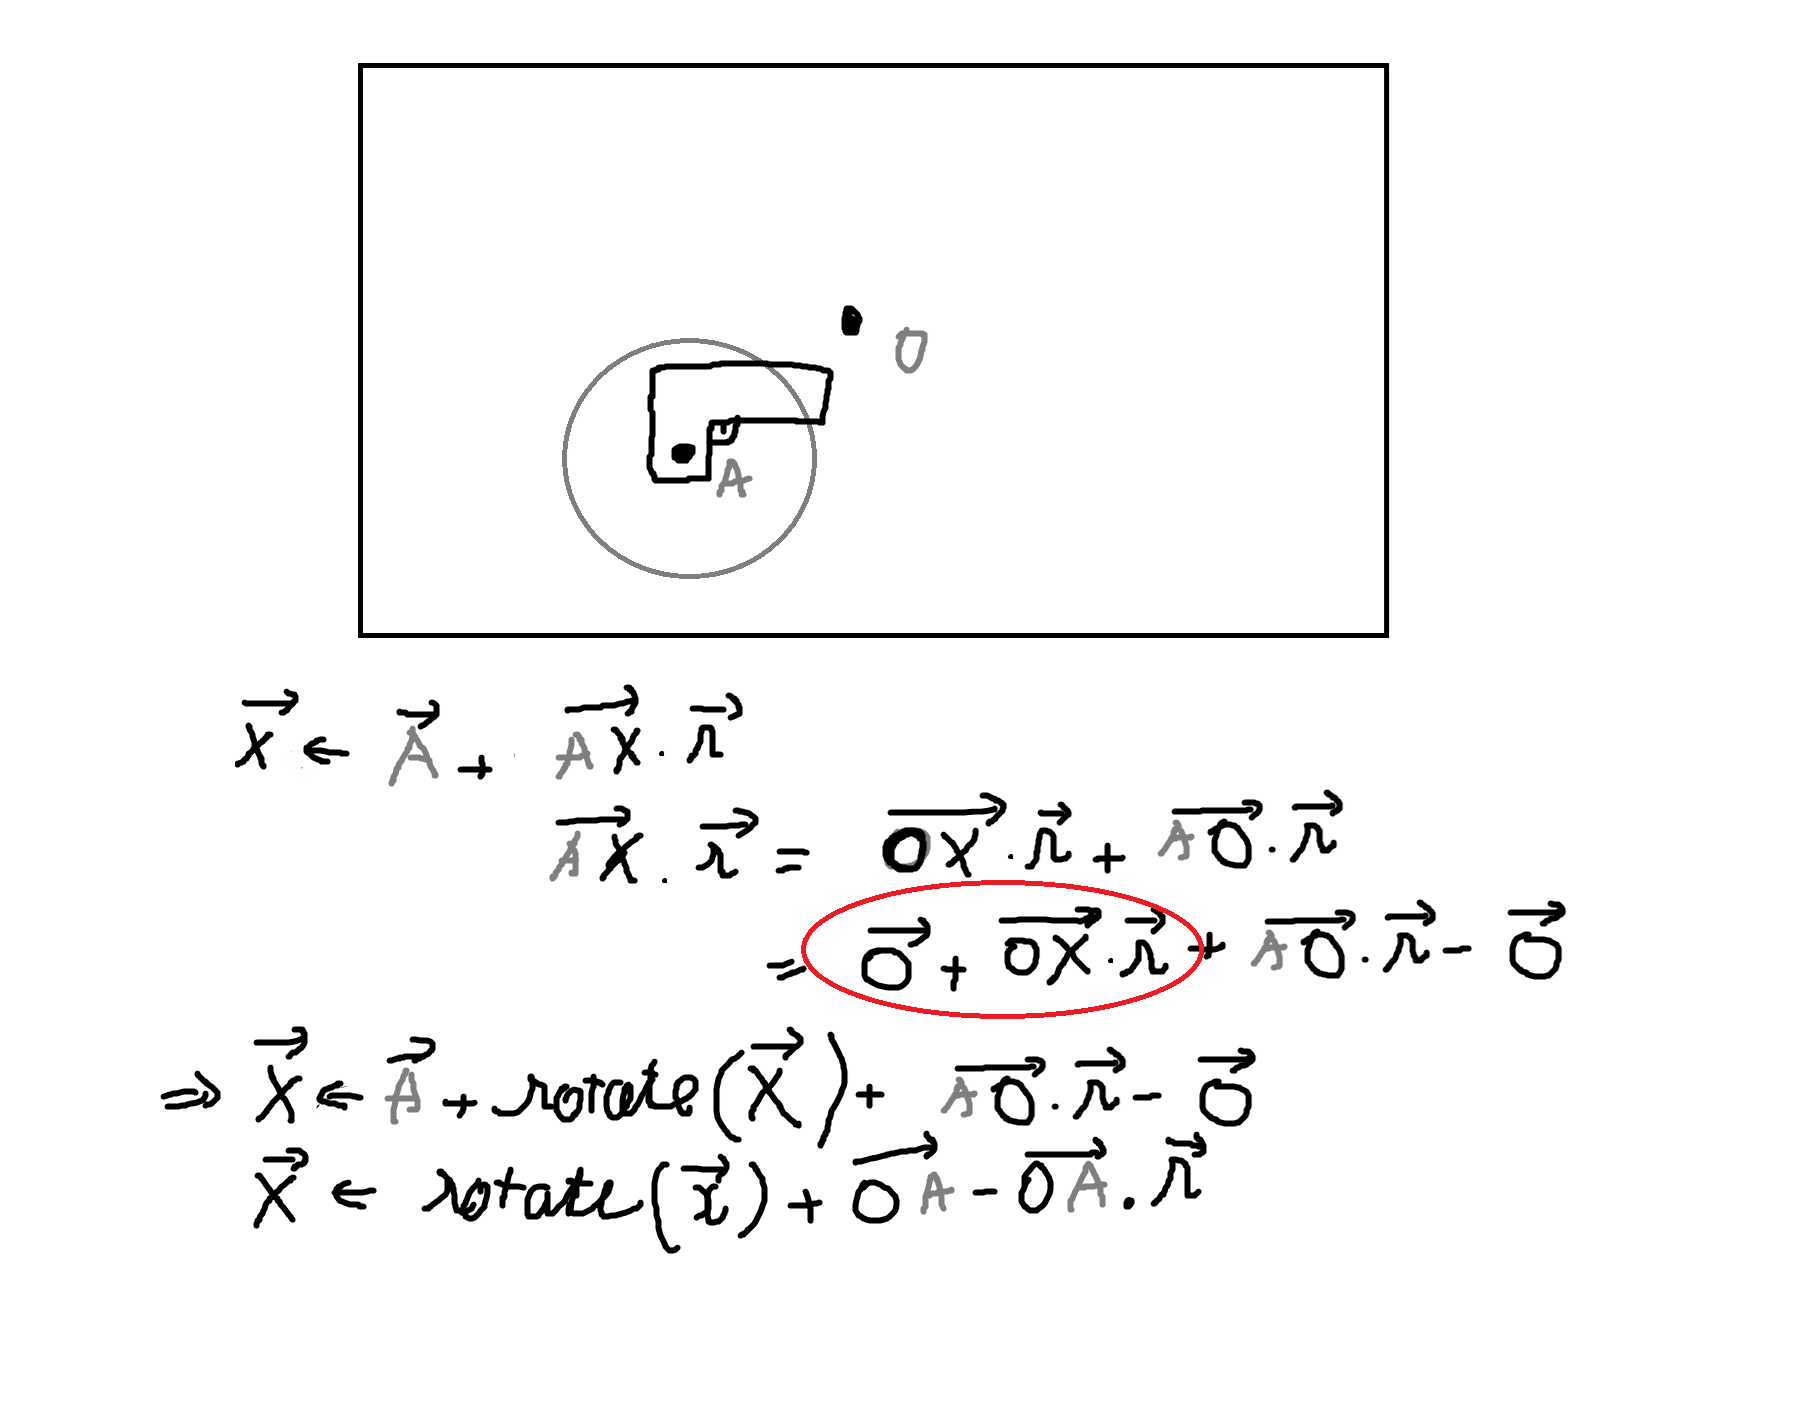 O
A
X⃗ ← A⃗ + AX⃗ · r⃗
AX⃗ · r⃗ = OX⃗ · r⃗ + AO⃗ · r⃗
= O⃗ + OX⃗ · r⃗ + AO⃗ · r⃗ - O⃗
⇒ X⃗ ← A⃗ + rotate(X⃗) + AO⃗ · r⃗ - O⃗
X⃗ ← rotate(x⃗) + OA⃗ - OA⃗ · r⃗